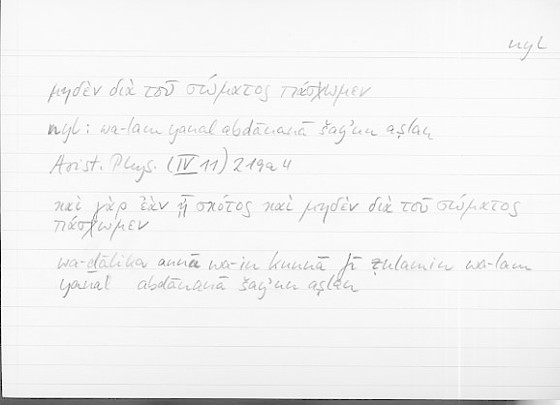 nyl
μηδὲν διὰ τοῦ σώματος πάσχωμεν
nyl: wa-lam yanal abdānanā šayʾun aṣlan
Arist. Phys. (IV 11) 219a4
καὶ γὰρ ἐὰν ᾖ σκότος καὶ μηδὲν διὰ τοῦ σώματος
πάσχωμεν
wa-ḏālika annā wa-in kunnā fī ẓulamin wa-lam
yanal abdānanā šayʾun aṣlan